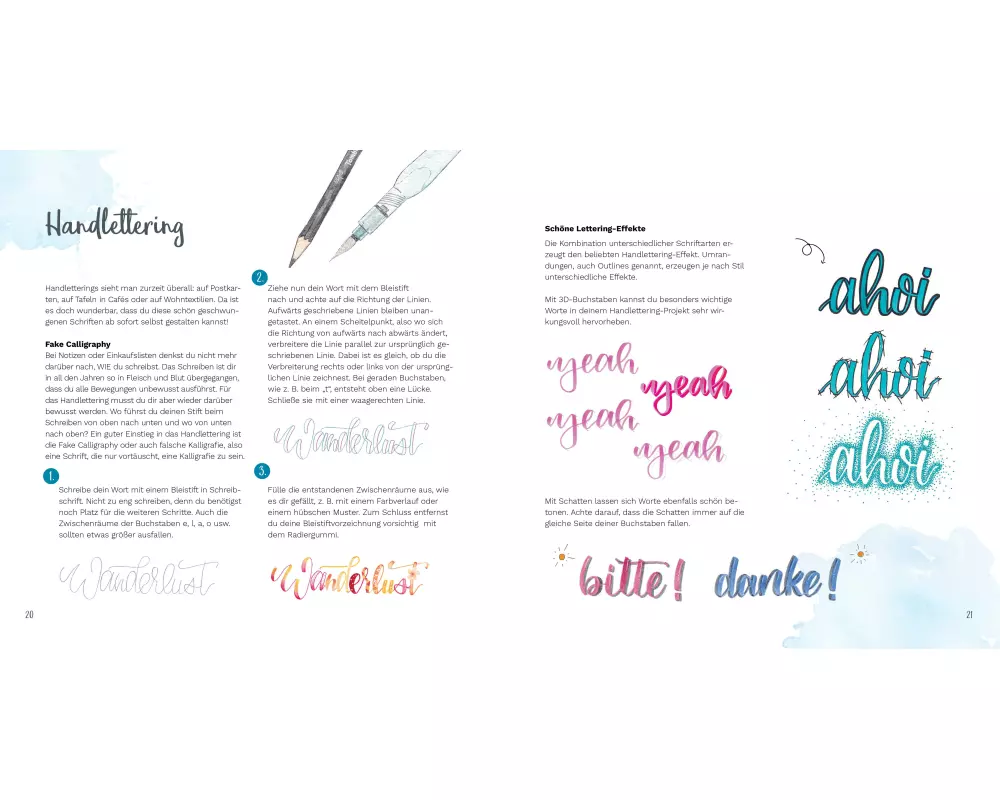 Handlettering
Handletterings sieht man zurzeit überall: auf Postkar-
ten, auf Tafeln in Cafés oder auf Wohntextilien. Da ist
es doch wunderbar, dass du diese schön geschwun-
genen Schriften ab sofort selbst gestalten kannst!
Fake Calligraphy
Bei Notizen oder Einkaufslisten denkst du nicht mehr
darüber nach, WIE du schreibst. Das Schreiben ist dir
in all den Jahren so in Fleisch und Blut übergegangen,
dass du alle Bewegungen unbewusst ausführst. Für
das Handlettering musst du dir aber wieder darüber
bewusst werden. Wo führst du deinen Stift beim
Schreiben von oben nach unten und wo von unten
nach oben? Ein guter Einstieg in das Handlettering ist
die Fake Calligraphy oder auch falsche Kalligrafie, also
eine Schrift, die nur vortäuscht, eine Kalligrafie zu sein.
1.
Schreibe dein Wort mit einem Bleistift in Schreib-
schrift. Nicht zu eng schreiben, denn du benötigst
noch Platz für die weiteren Schritte. Auch die
Zwischenräume der Buchstaben e, l, a, o usw.
sollten etwas größer ausfallen.
Wanderlust
20
2.
Ziehe nun dein Wort mit dem Bleistift
nach und achte auf die Richtung der Linien.
Aufwärts geschriebene Linien bleiben unan-
getastet. An einem Scheitelpunkt, also wo sich
die Richtung von aufwärts nach abwärts ändert,
verbreitere die Linie parallel zur ursprünglich ge-
schriebenen Linie. Dabei ist es gleich, ob du die
Verbreiterung rechts oder links von der ursprüng-
lichen Linie zeichnest. Bei geraden Buchstaben,
wie z. B. beim „t“, entsteht oben eine Lücke.
Schließe sie mit einer waagerechten Linie.
Wanderlust
3.
Fülle die entstandenen Zwischenräume aus, wie
es dir gefällt, z. B. mit einem Farbverlauf oder
einem hübschen Muster. Zum Schluss entfernst
du deine Bleistiftvorzeichnung vorsichtig mit
dem Radiergummi.
Wanderlust
Schöne Lettering-Effekte
Die Kombination unterschiedlicher Schriftarten er-
zeugt den beliebten Handlettering-Effekt. Umran-
dungen, auch Outlines genannt, erzeugen je nach Stil
unterschiedliche Effekte.
Mit 3D-Buchstaben kannst du besonders wichtige
Worte in deinem Handlettering-Projekt sehr wir-
kungsvoll hervorheben.
yeah
yeah
yeah
yeah
ahoi
ahoi
ahoi
Mit Schatten lassen sich Worte ebenfalls schön be-
tonen. Achte darauf, dass die Schatten immer auf die
gleiche Seite deiner Buchstaben fallen.
bitte! danke!
21